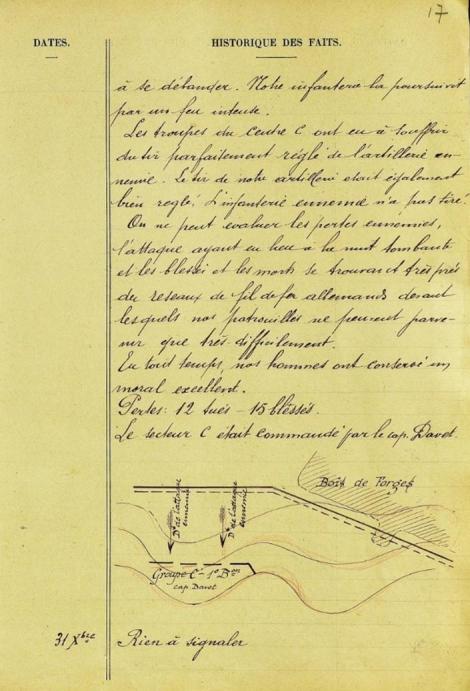 17
DATES.
HISTORIQUE DES FAITS.
à se débander. Notre infanterie la poursuivit
par un feu intense.
Les troupes du centre C ont eu à souffrir
du tir parfaitement réglé de l'artillerie en-
nemie. Le tir de notre artillerie était également
bien réglé. L'infanterie ennemie n'a pas tiré.
On ne peut évaluer les pertes ennemies,
l'attaque ayant eu lieu à la nuit tombante
et les blessés et les morts se trouvant très près
du réseaux de fil de fer allemands devant
lesquels nos patrouilles ne peuvent parve-
nir que très difficilement.
En tout temps, nos hommes ont conservé un
moral excellent.
Pertes: 12 tués - 15 blessés.
Le secteur C était commandé par le cap. Davet.
Bois de Forges
Don de l'attaque
ennemie
Don de l'attaque
ennemie
Groupe C - 1er Bon
cap. Davet
31 Xbre Rien à signaler